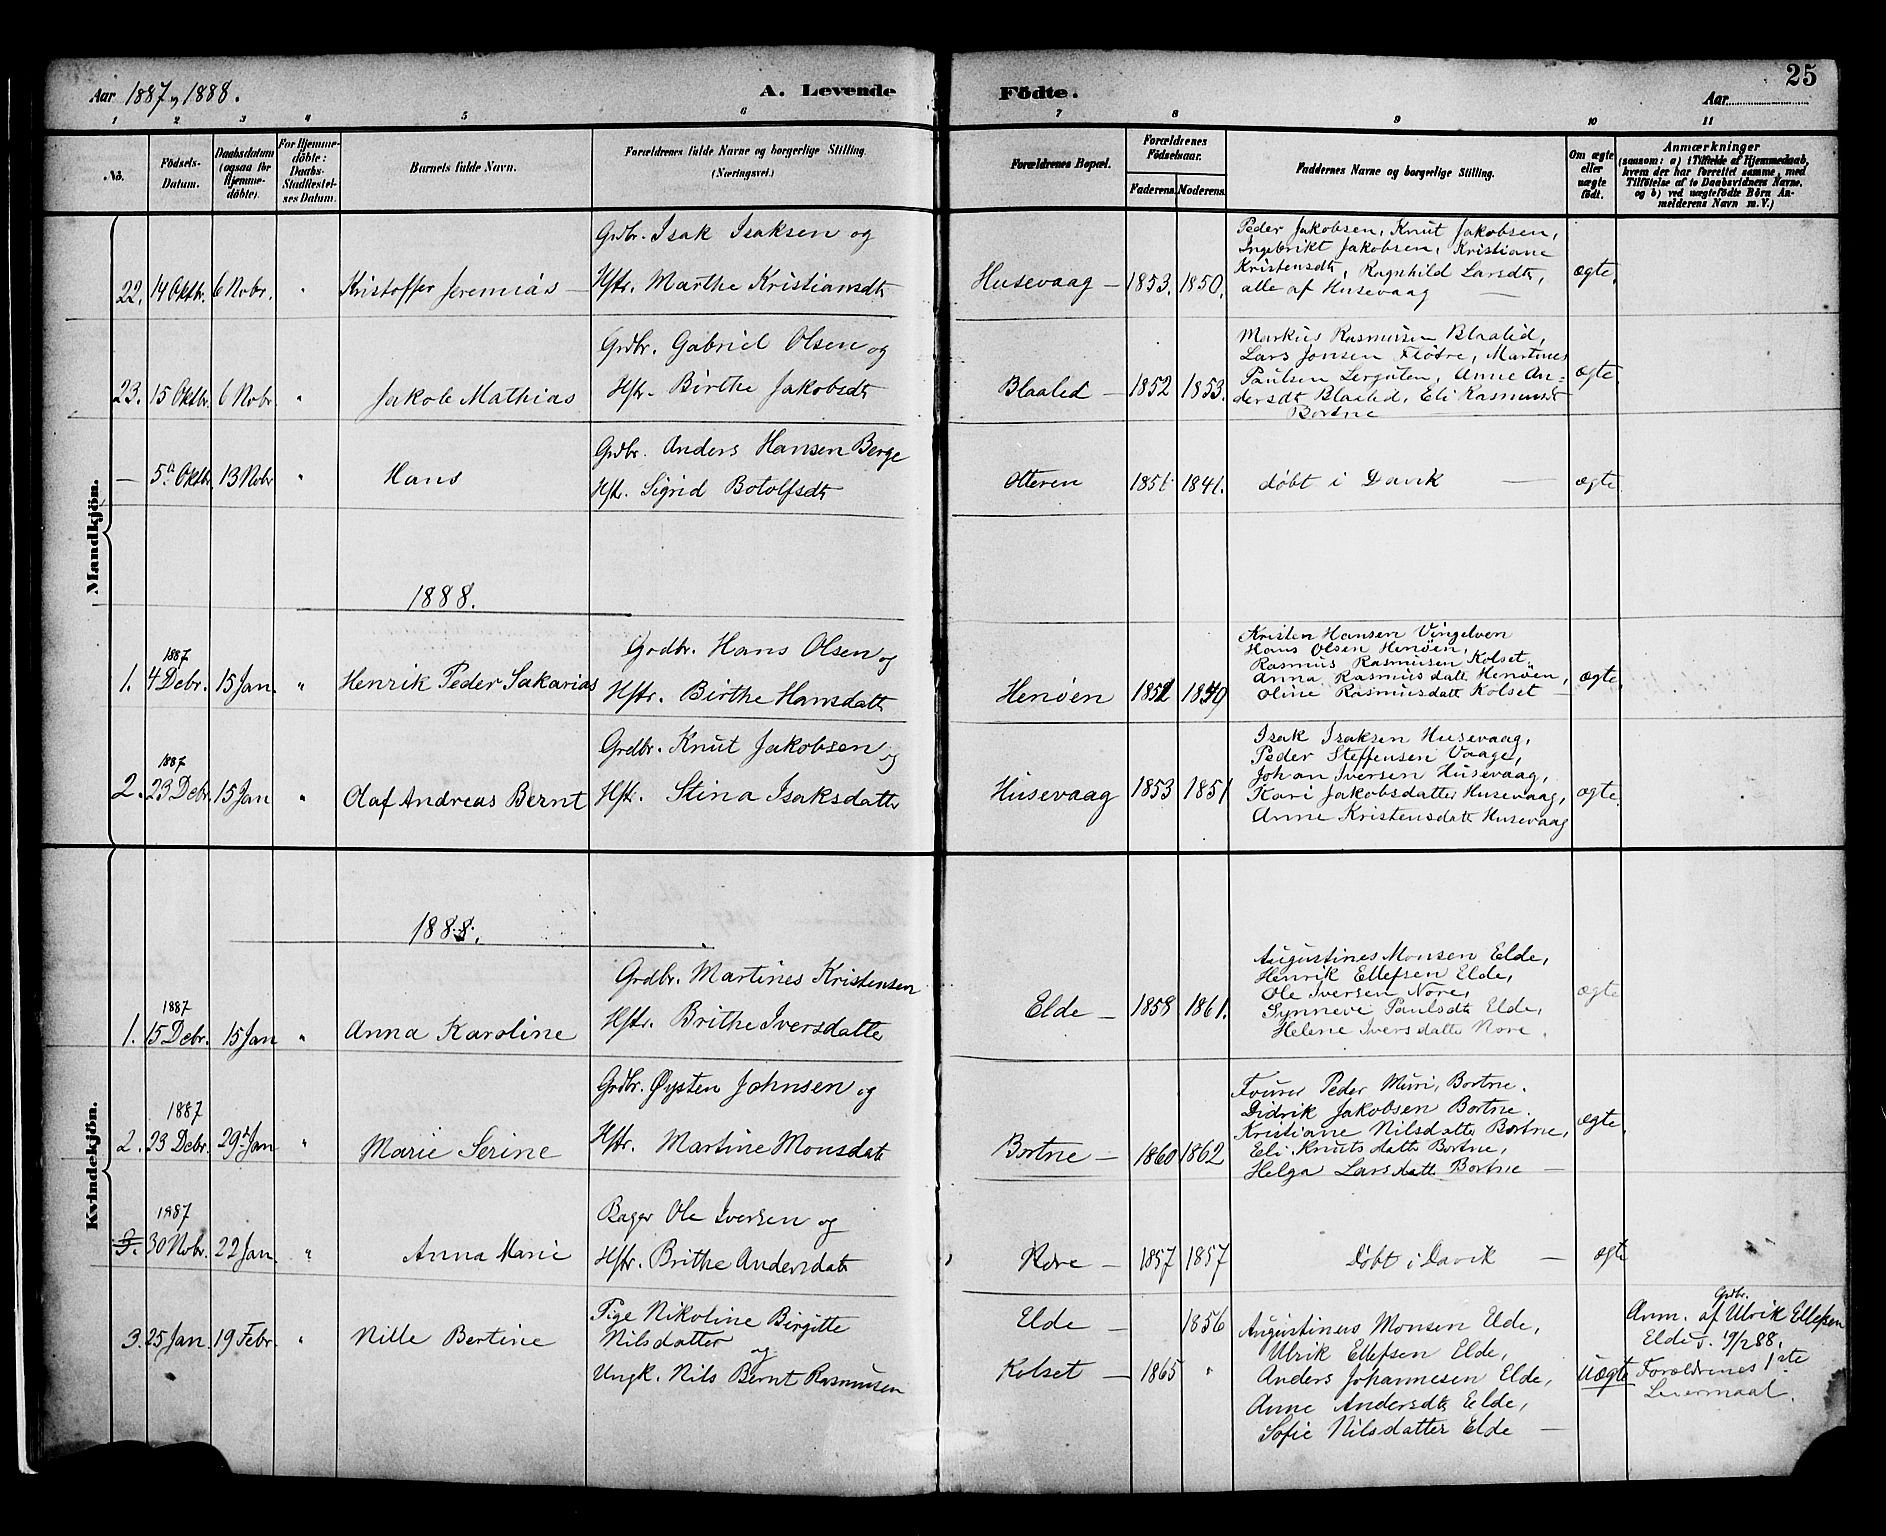 Aar 1887 og 1888.
A. Levende
Födte.
25
Aar
1 2 3 4 5 6 7 8 9 10 11
No.
Födsels-
Datum.
Daabsdatum
(ogsaa for
Hjemme-
döbte).
For Hjemme-
döbte:
Daabs-
Stadfæstel-
ses Datum.
Barnets fulde Navn.
Forældrenes fulde Navne og borgerlige Stilling.
(Næringsvei.)
Forældrenes Bopæl.
Forældrenes
Födselsaar.
Faderens. Moderens.
Faddernes Navne og borgerlige Stilling.
Om ægte
eller
uægte
födt.
Anmærkninger
(saasom: a) i Tilfælde af Hjemmedaab,
hvem der har forrettet samme, med
Tilföielse af to Daabsvidners Navne,
og b) ved uægtefödte Börn An-
melderens Navn m. V.)
Mandkjön.
22. 14 Oktbr. 6 Nobr. " Kristoffer Jeremias –
Grdbr. Isak Isaksen og
Hstr. Marthe Kristiansdtr
Husevaag – 1853. 1850.
Peder Jakobsen, Knut Jakobsen,
Ingebrikt Jakobsen, Kristiane
Kristensdtr, Ragnhild Larsdtr,
alle af Husevaag –
ægte.
23. 15 Oktbr. 6 Nobr. " Jakob Mathias
Grdbr. Gabriel Olsen og
Hstr. Birthe Jakobsdtr
Blaalid – 1852 1853.
Markus Rasmussen Blaalid,
Lars Jonsen Flötre, Martines
Paulsen Lerguten, Anne An-
dersdtr Blaalid, Eli Rasmusdtr
Bortne
ægte.
– 5te Oktbr. 13 Nobr " Hans
Grdbr. Anders Hansen Berge
Hstr. Sigrid Botolfsdtr
Otteren 1851 1841. döbt i Davik – ægte
1888.
1887
1. 4 Debr. 15 Jan. " Henrik Peder Sakarias
Grdbr. Hans Olsen og
Hstr. Birthe Hansdattr
Henöen 1852 1849
Kristen Hansen Vingelven
Hans Olsen Henöen,
Rasmus Rasmusen Kolset
Anna Rasmusdattr Henöen,
Oline Rasmusdattr Kolset –
ægte.
1887
2. 23 Debr. 15 Jan " Olaf Andreas Bernt
Grdbr. Knut Jakobsen og
Hstr. Stina Isaksdatter
Husevaag 1853 1851
Isak Isaksen Husevaag,
Peder Steffensen Vaage,
Johan Iversen Husevaag,
Kari Jakobsdatter Husevaag,
Anne Kristensdattr Husevaag
ægte.
Kvindekjön.
1888.
1887
1. 15 Debr. 15 Jan " Anna Karoline
Grdbr. Martines Kristensen
Hstr. Brithe Iversdatter
Elde – 1858 1861.
Augustines Monsen Elde,
Henrik Ellefsen Elde,
Ole Iversen Nore,
Synneve Paulsdtr Elde,
Helene Iversdattr Nore.
ægte
1887
2. 23 Debr. 29de Jan " Marie Serine
Grdbr. Øysten Johnsen og
Hstr. Martine Monsdatr
Bortne – 1860 1862
Fourer Peder Muri, Bortne.
Didrik Jakobsen Bortne.
Kristiane Nilsdattr Bortne,
Eli Knutsdattr Bortne,
Helga Larsdattr Bortne –
ægte.
1887
3. 30 Nobr. 22 Jan " Anna Marie
Bager Ole Iversen og
Hstr. Brithe Andersdatr
Nore – 1857 1857 Döbt i Davik – ægte
3. 25 Jan. 19 Febr. " Nille Bertine
Pige Nikoline Birgitte
Nilsdatter
og
Ungk. Nils Bernt Rasmusen
Elde – 1856
Kolset – 1865 "
Augustines Monsen Elde,
Ulrik Ellefsen Elde,
Anders Johannesen Elde,
Anne Andersdtr Elde,
Sofie Nilsdatter Elde –
uægte
Grdbr.
Anm. af Ulrik Ellefsen
Elde d. 19/2 88.
Forældrenes 1ste
Leiermaal.